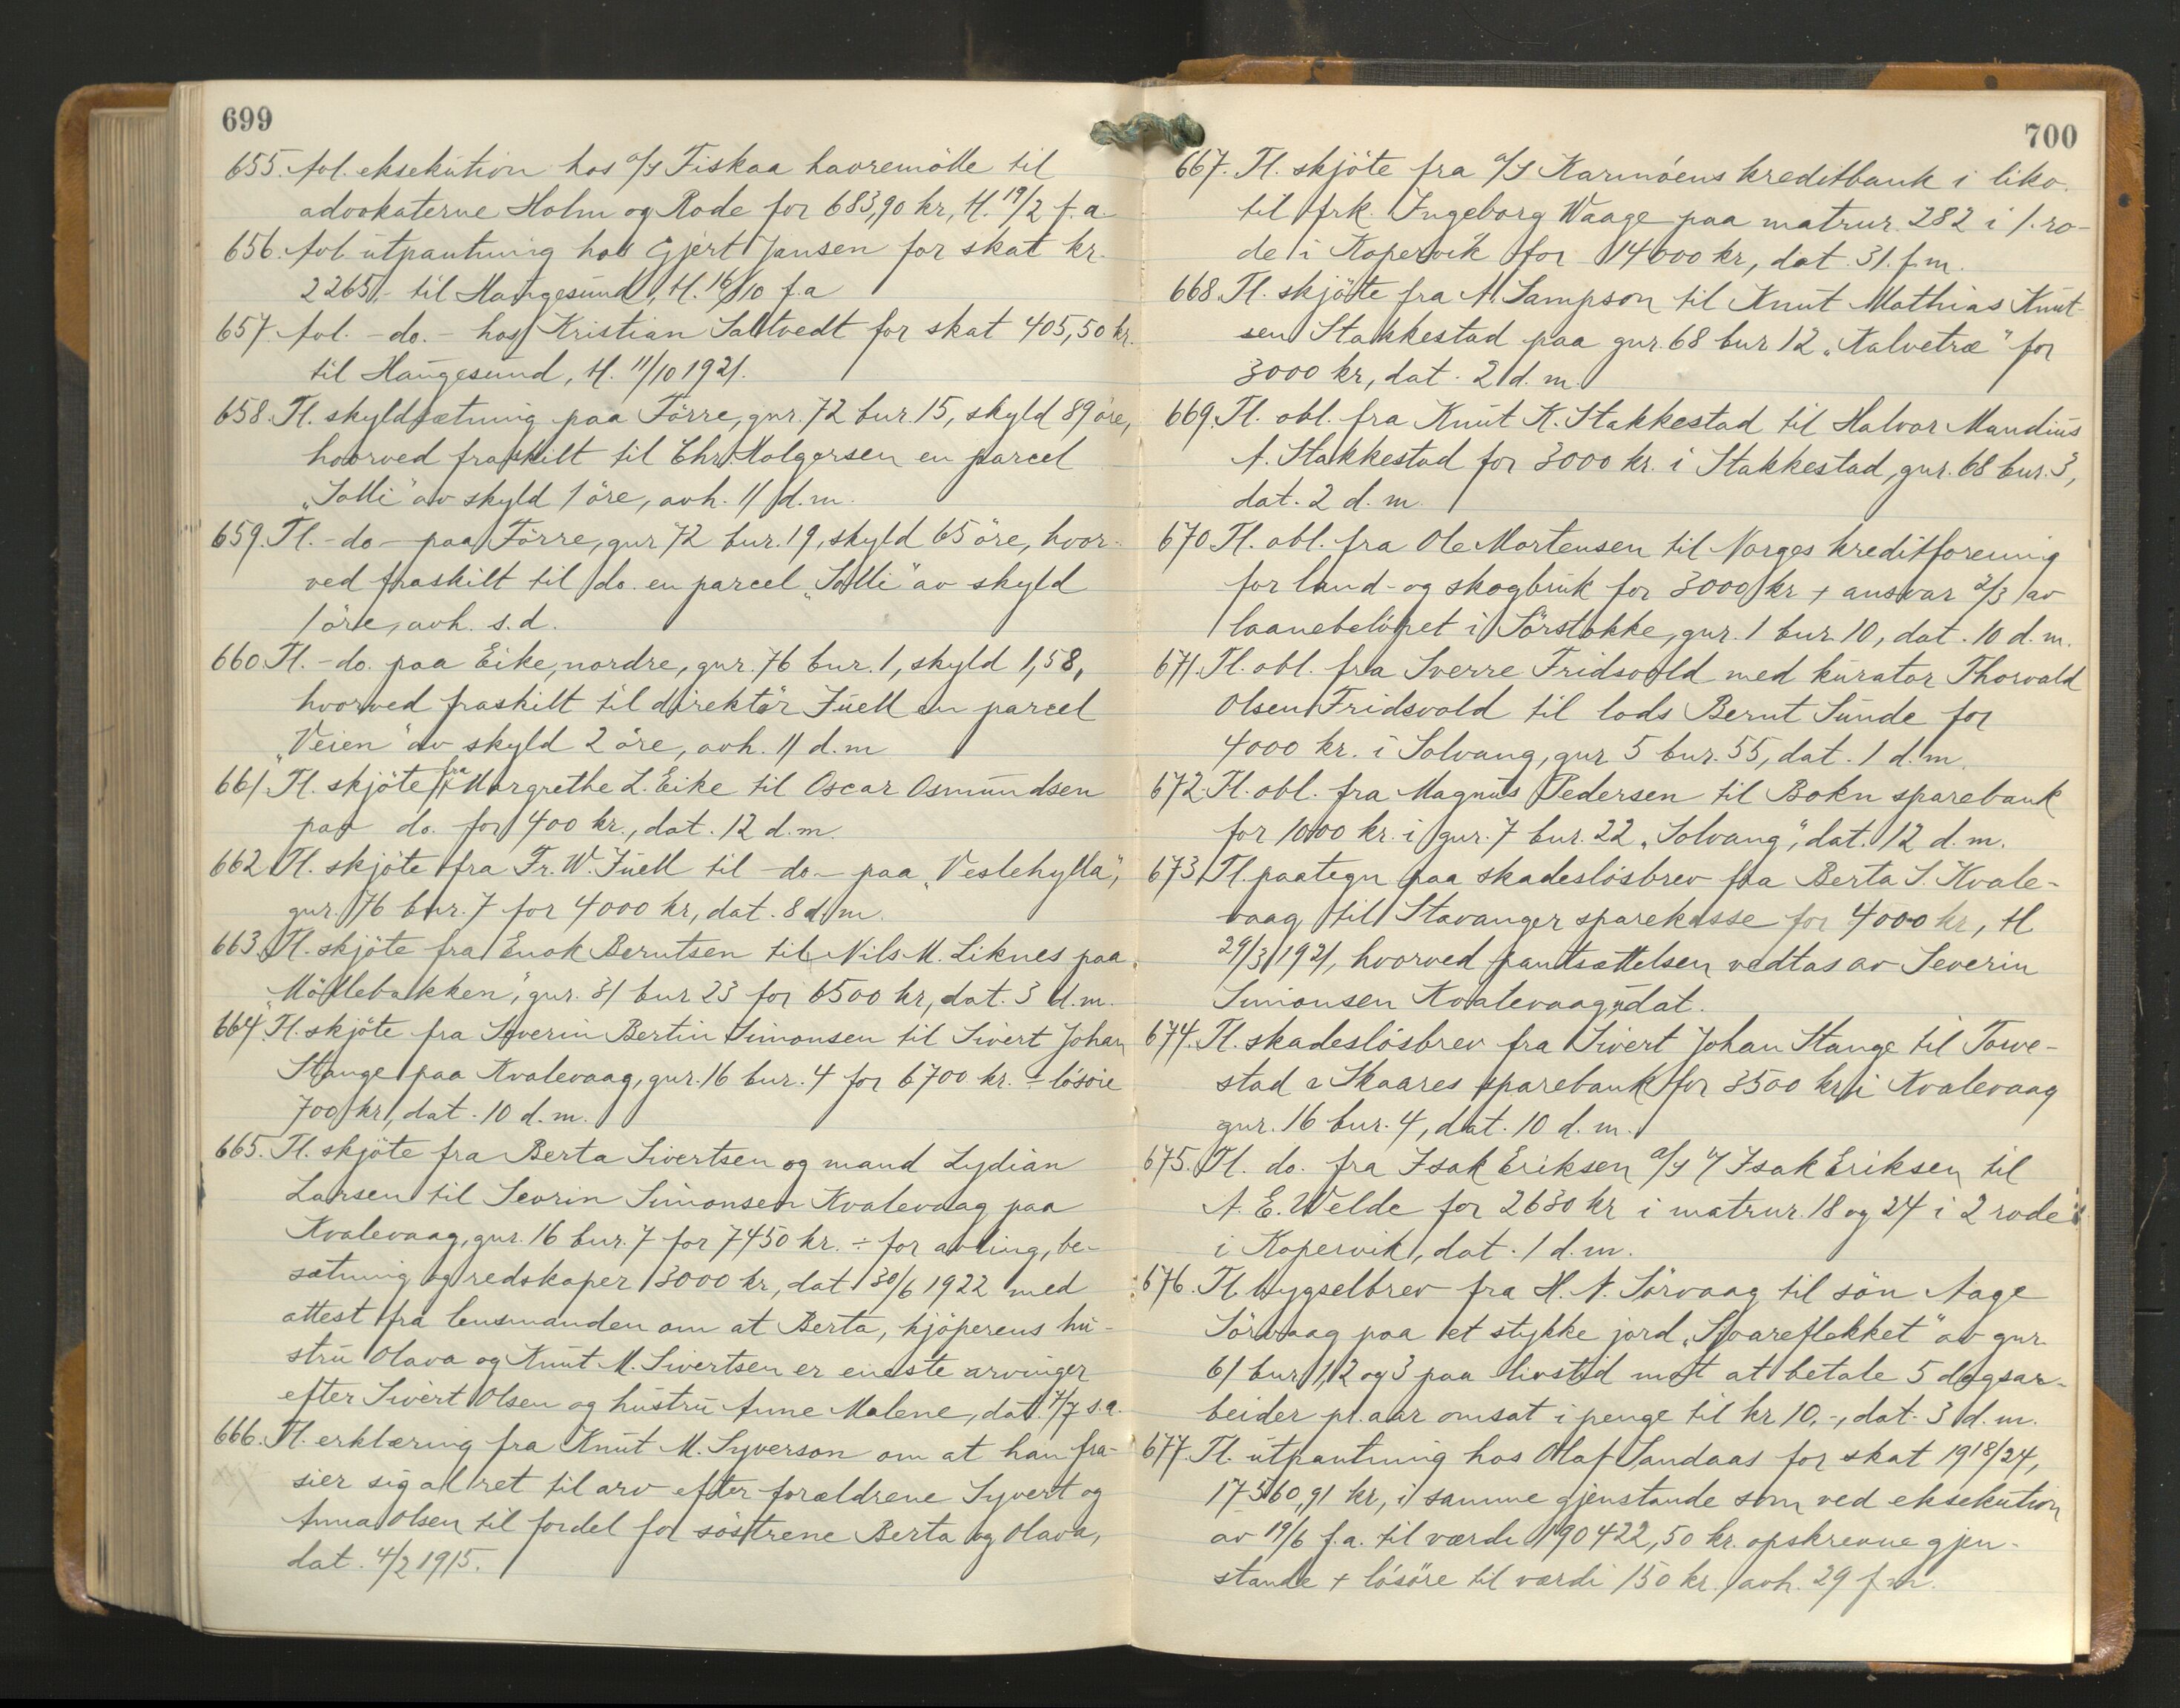 699
655. Avl. eksekution hos A/S Fiskaa havremölle til
advokaterne Holm og Rode for 683,90 kr, tl. 19/2 f.a.
656. Avl. utpantning hos Gjert Jansen for skat kr.
2265,- til Haugesund, tl. 16/10 f.a
657. Avl. - do. - hos Kristian Saltvedt for skat 405,50 kr.
til Haugesund, tl. 11/10 1921.
658. Tl. skyldsætning paa Förre, gnr. 72 bnr. 15, skyld 89 öre,
hvorved fraskilt til Chr. Holgersen en parcel
"Solli" av skyld 1 öre, avh. 11 d.m.
659. Tl. - do - paa Förre, gnr 72 bnr. 19, skyld 65 öre, hvor-
ved fraskilt til do. en parcel "Solli" av skyld
1 öre, avh. s.d.
660. Tl. - do. paa Eike, nordre, gnr. 76 bnr. 1, skyld 1,58,
hvorved fraskilt til direktör Juell en parcel
"Veien" av skyld 2 öre, avh. 11 d.m
661. Tl. skjöte fra Margrethe L. Eike til Oscar Osmundsen
paa do. for 400 kr., dat. 12 d.m.
662. Tl. skjöte fra Fr. W. Juell til - do - paa "Veslehylla",
gnr. 76 bnr. 7 for 4000 kr, dat. 8 d.m.
663. Tl. skjöte fra Enok Berntsen til Nils M. Liknes paa
"Möllebakken", gnr. 31 bnr 23 for 6500 kr, dat. 3 d.m.
664. Tl. skjöte fra Severin Bertin Simonsen til Sivert Johan
Stange paa Kvalevaag, gnr. 16 bnr. 4 for 6700 kr. ÷ lösöre
700 kr, dat. 10 d.m.
665. Tl. skjöte fra Berta Sivertsen og mand Lydian
Larsen til Sevrin Simonsen Kvalevaag paa
Kvalevaag, gnr. 16 bnr. 7 for 7450 kr. ÷ for avling, be-
sætning og redskaper 3000 kr, dat 30/6 1922 med
attest fra lensmanden om at Berta, kjöperens hu-
stru Olava og Knut M. Sivertsen er eneste arvinger
efter Sivert Olsen og hustru Anne Malene, dat. 7/7 s.a.
666. Tl. erklæring fra Knut M. Syverson om at han fra-
sier sig al ret til arv efter forældrene Syvert og
Anna Olsen til fordel for söstrene Berta og Olava,
dat. 4/2 1915.
700
667. Tl. skjöte fra A/S Karmöens kreditbank i likv.
til frk. Ingeborg Waage paa matrnr. 282 i 1. ro-
de i Kopervik for 14000 kr, dat. 31. f.m.
668. Tl. skjöte fra A. Sampson til Knut Mathias Knut-
sen Stakkestad paa gnr. 68 bnr 12 "Kalvetræ" for
3000 kr, dat. 2 d.m.
669. Tl. obl. fra Knut K. Stakkestad til Halvor Mandius
A. Stakkestad for 3000 kr. i Stakkestad, gnr. 68 bnr. 3,
dat. 2 d.m.
670. Tl. obl. fra Ole Mortensen til Norges kreditforening
for land- og skogbruk for 3000 kr + ansvar 2/3 av
laanebelöpet i Sörstokke, gnr. 1 bnr. 10, dat. 10 d.m.
671. Tl. obl. fra Sverre Fridsvold med kurator Thorvald
Olsen Fridsvold til lods Bernt Sunde for
4000 kr. i Solvang, gnr 5 bnr. 55, dat. 1 d.m.
672. Tl. obl. fra Magnus Pedersen til Bokn sparebank
for 1000 kr. i gnr. 7 bnr. 22 "Solvang", dat. 12 d.m.
673. Tl. paategn paa skadeslösbrev fra Berta S. Kvale-
vaag til Stavanger sparekasse for 4000 kr, tl.
29/3 1921, hvorved pantsættelsen vedtas av Severin
Simonsen Kvalevaag, udat.
674. Tl. skadeslösbrev fra Sivert Johan Stange til Torve-
stad & Skaares sparebank for 3500 kr i Kvalevaag
gnr. 16 bnr. 4, dat. 10 d.m.
675. Tl. do. fra Isak Eriksen A/S v/ Isak Eriksen til
A. E. Velde for 2630 kr i matrnr. 18 og 24 i 2 rode
i Kopervik, dat. 1 d.m.
676. Tl. bygselbrev fra H. A. Sörvaag til sön Aage
Sörvaag paa et stykke jord "Svareflekket" av gnr.
61 bnr 1, 2 og 3 paa livstid mot at betale 5 dagsar-
beider pr. aar omsat i penge til kr 10,-, dat. 3 d.m.
677. Tl. utpantning hos Olaf Sandaas for skat 1918/24,
17360,91 kr, i samme gjenstande som ved eksekution
av 19/6 f.a. til værdi 190422,50 kr. opskrevne gjen-
stande + lösöre til værdi 150 kr. avh. 29 f.m.